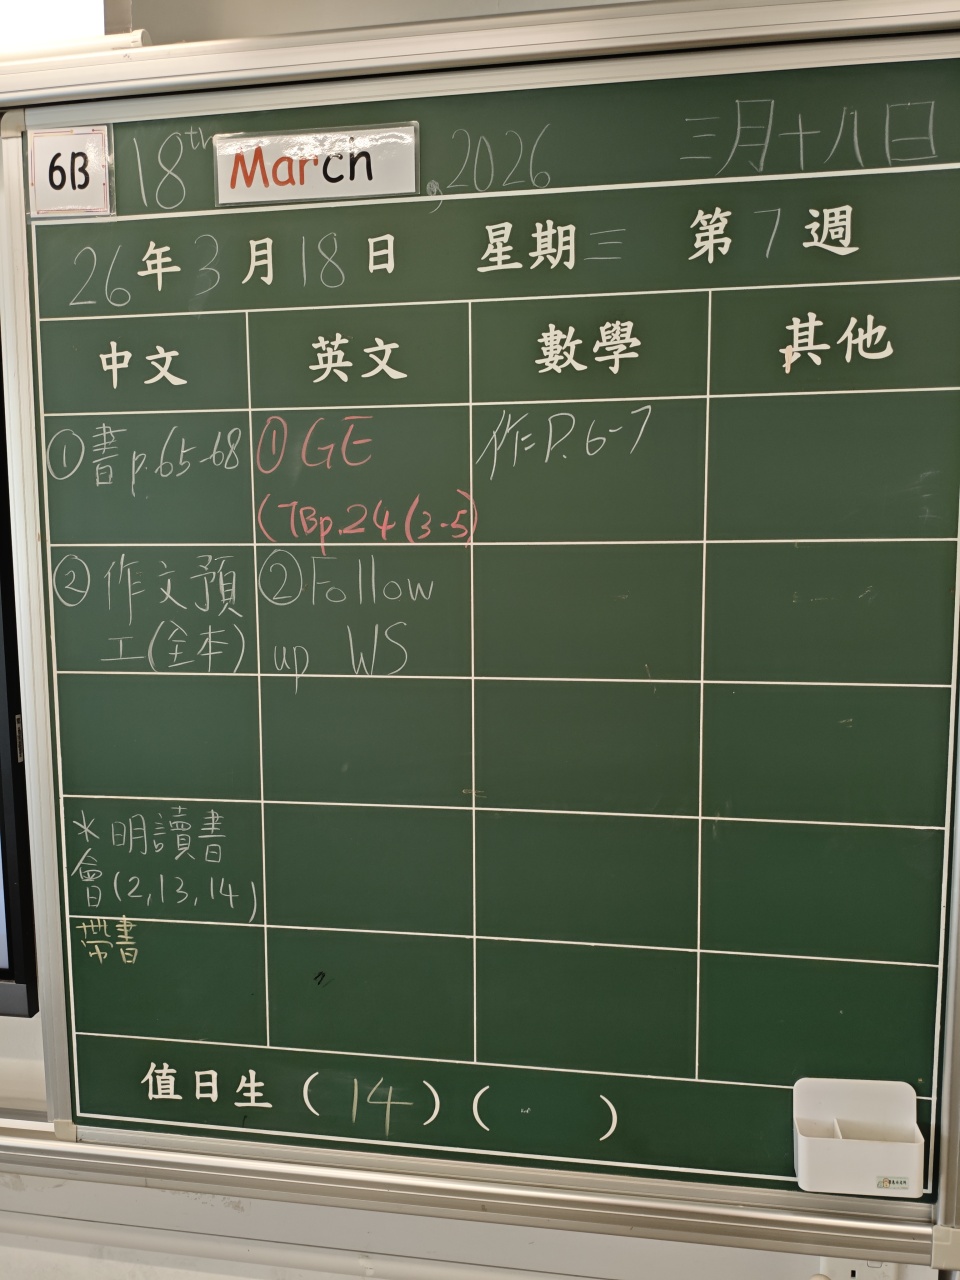 6B 18th March, 2026 三月十八日
26年3月18日 星期三 第7週
中文 英文 數學 其他
①書p.65-68
①GE
(7Bp.24(3-5)
作P.6-7
②作文預
工(全本)
②Follow
up WS
*明讀書
會(2,13,14)
帶書
值日生(14)( )